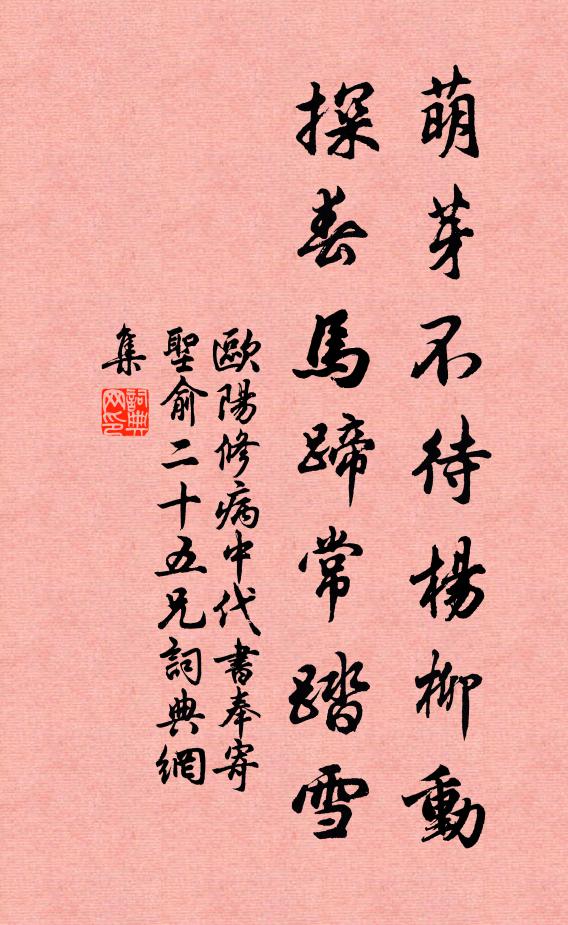 萌芽不待楊柳動
探春馬蹄常踏雪
歐陽修病中代書奉寄
聖俞二十五兄詞典網
集
詞典网印